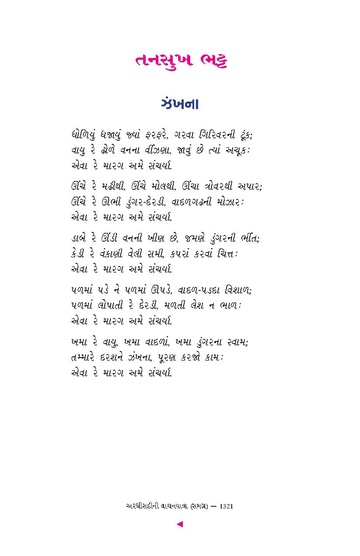 તનસુખ ભટ્ટ
ઝંખના
ધોળિયું ધજાયું જ્યાં ફરફરે, ગરવા ગિરિવરની ટૂંક;
વાયુ રે ઢોળે વનના વીંઝણા, જાવું છે ત્યાં અચૂકઃ
એવા રે મારગ અમે સંચર્યા.
ઊંચે રે મઢીથી, ઊંચે મોલથી, ઊંચા ત્રોવરથી અપાર;
ઊંચે રે ઊભી ડુંગર-દેરડી, વાદળગઢની મોઝારઃ
એવા રે મારગ અમે સંચર્યા.
ડાબે રે ઊંડી વનની ખીણ છે, જમણે ડુંગરની ભીંત;
કેડી રે વંકાણી વેલી સમી, કપરાં કરવાં ચિત્તઃ
એવા રે મારગ અમે સંચર્યા.
પળમાં પડે ને પળમાં ઊપડે, વાદળ-પડદા વિશાળ;
પળમાં લોપાતી રે દેરડી, મળતી લેશ ન ભાળઃ
એવા રે મારગ અમે સંચર્યા.
ખમા રે વાયુ, ખમા વાદળાં, ખમા ડુંગરના સ્વામ;
તમ્મારે દરશને ઝંખના, પૂરણ કરજો કામઃ
એવા રે મારગ અમે સંચર્યા.
અરધીસદીની વાચનયાત્રા (સમગ્ર) — 1321